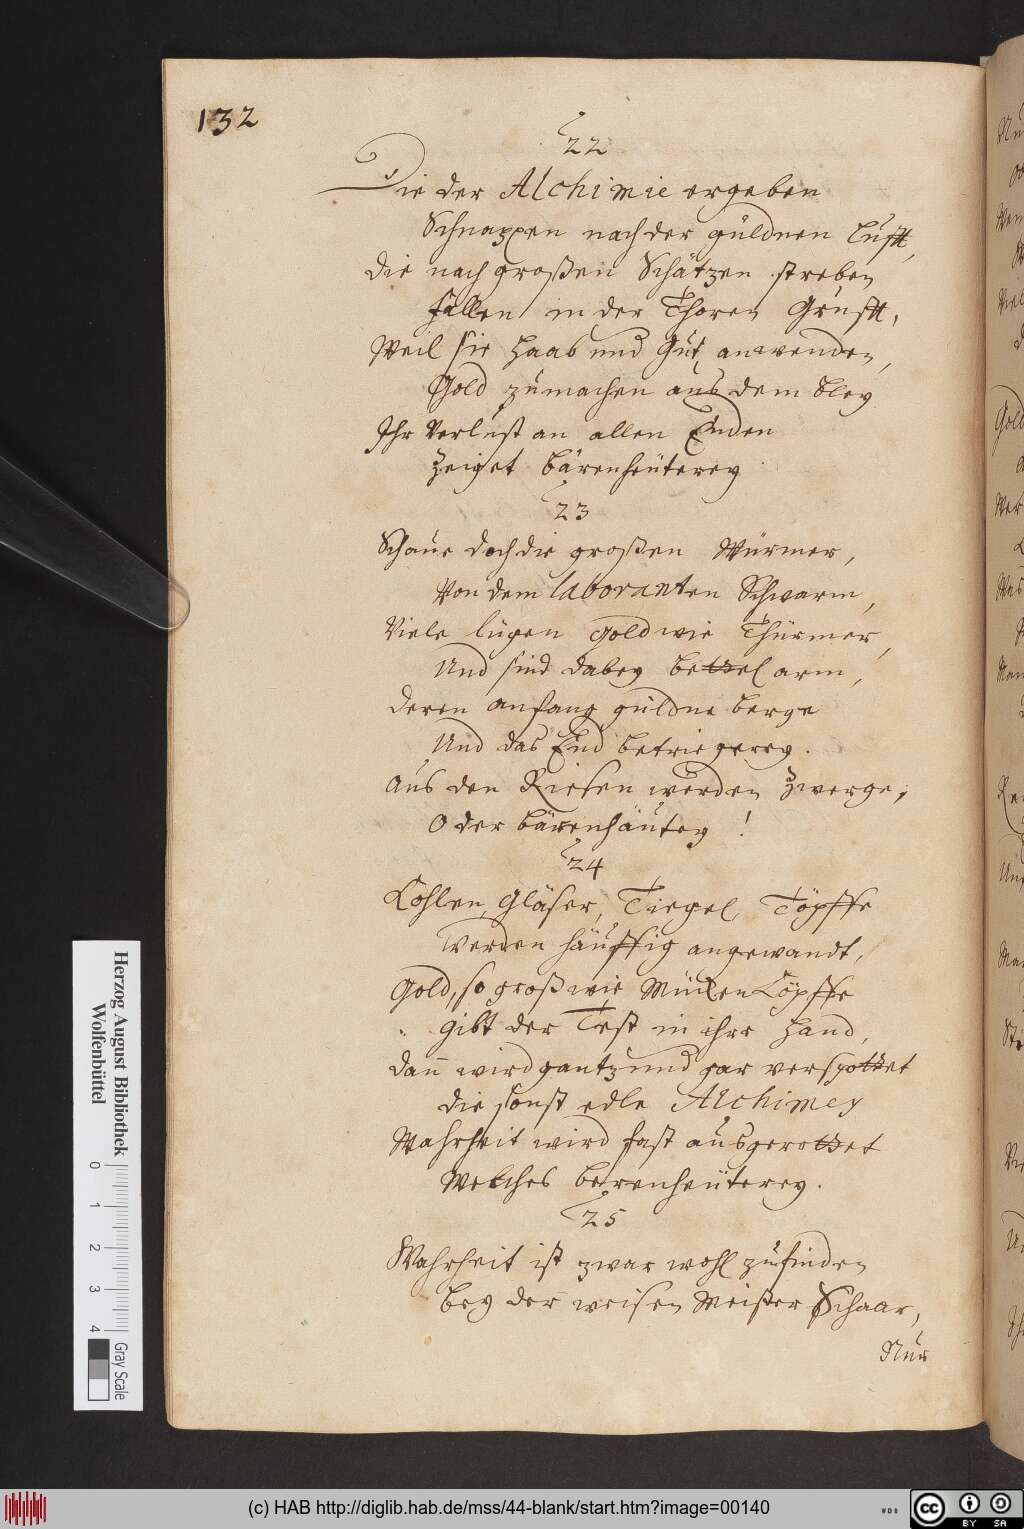 132
22
Die der Alchimie ergeben
Schnappen nach der güldnen Lufft,
die nach großen Schätzen streben
fallen in der Thoren Grufft,
Weil sie Haab und Gut anwenden,
Gold zumachen aus dem bley
Ihr Verlust an allen Enden
Zeiget bärenheüterey
23
Schaue doch die großen Würmer,
Von dem laboranten Schwarm,
Viele lügen Gold wie Thürmer,
Und sind dabey bettel arm,
deren anfang güldne berge
Und das End betriegerey.
Aus den Riesen werden Zwerge,
O der bärenhäutey!
24
Cohlen, Gläser, Tiegel, Töpffe
Werden häuffig angewandt,
Gold, so groß wie Mücken Cöpffe
gibt der Test in ihre Hand,
dañ wird gantz und gar verspottet
die sonst edle Alchimey
Wahrheit wird fast ausgerottet
Welches berenheüterey.
25
Wahrheit ist zwar wohl zufinden
bey der weisen Meister Schaar,
Nur
Herzog August Bibliothek
Wolfenbüttel
0 1 2 3 4
Gray Scale
(c) HAB http://diglib.hab.de/mss/44-blank/start.htm?image=00140
WDB
cc
BY SA